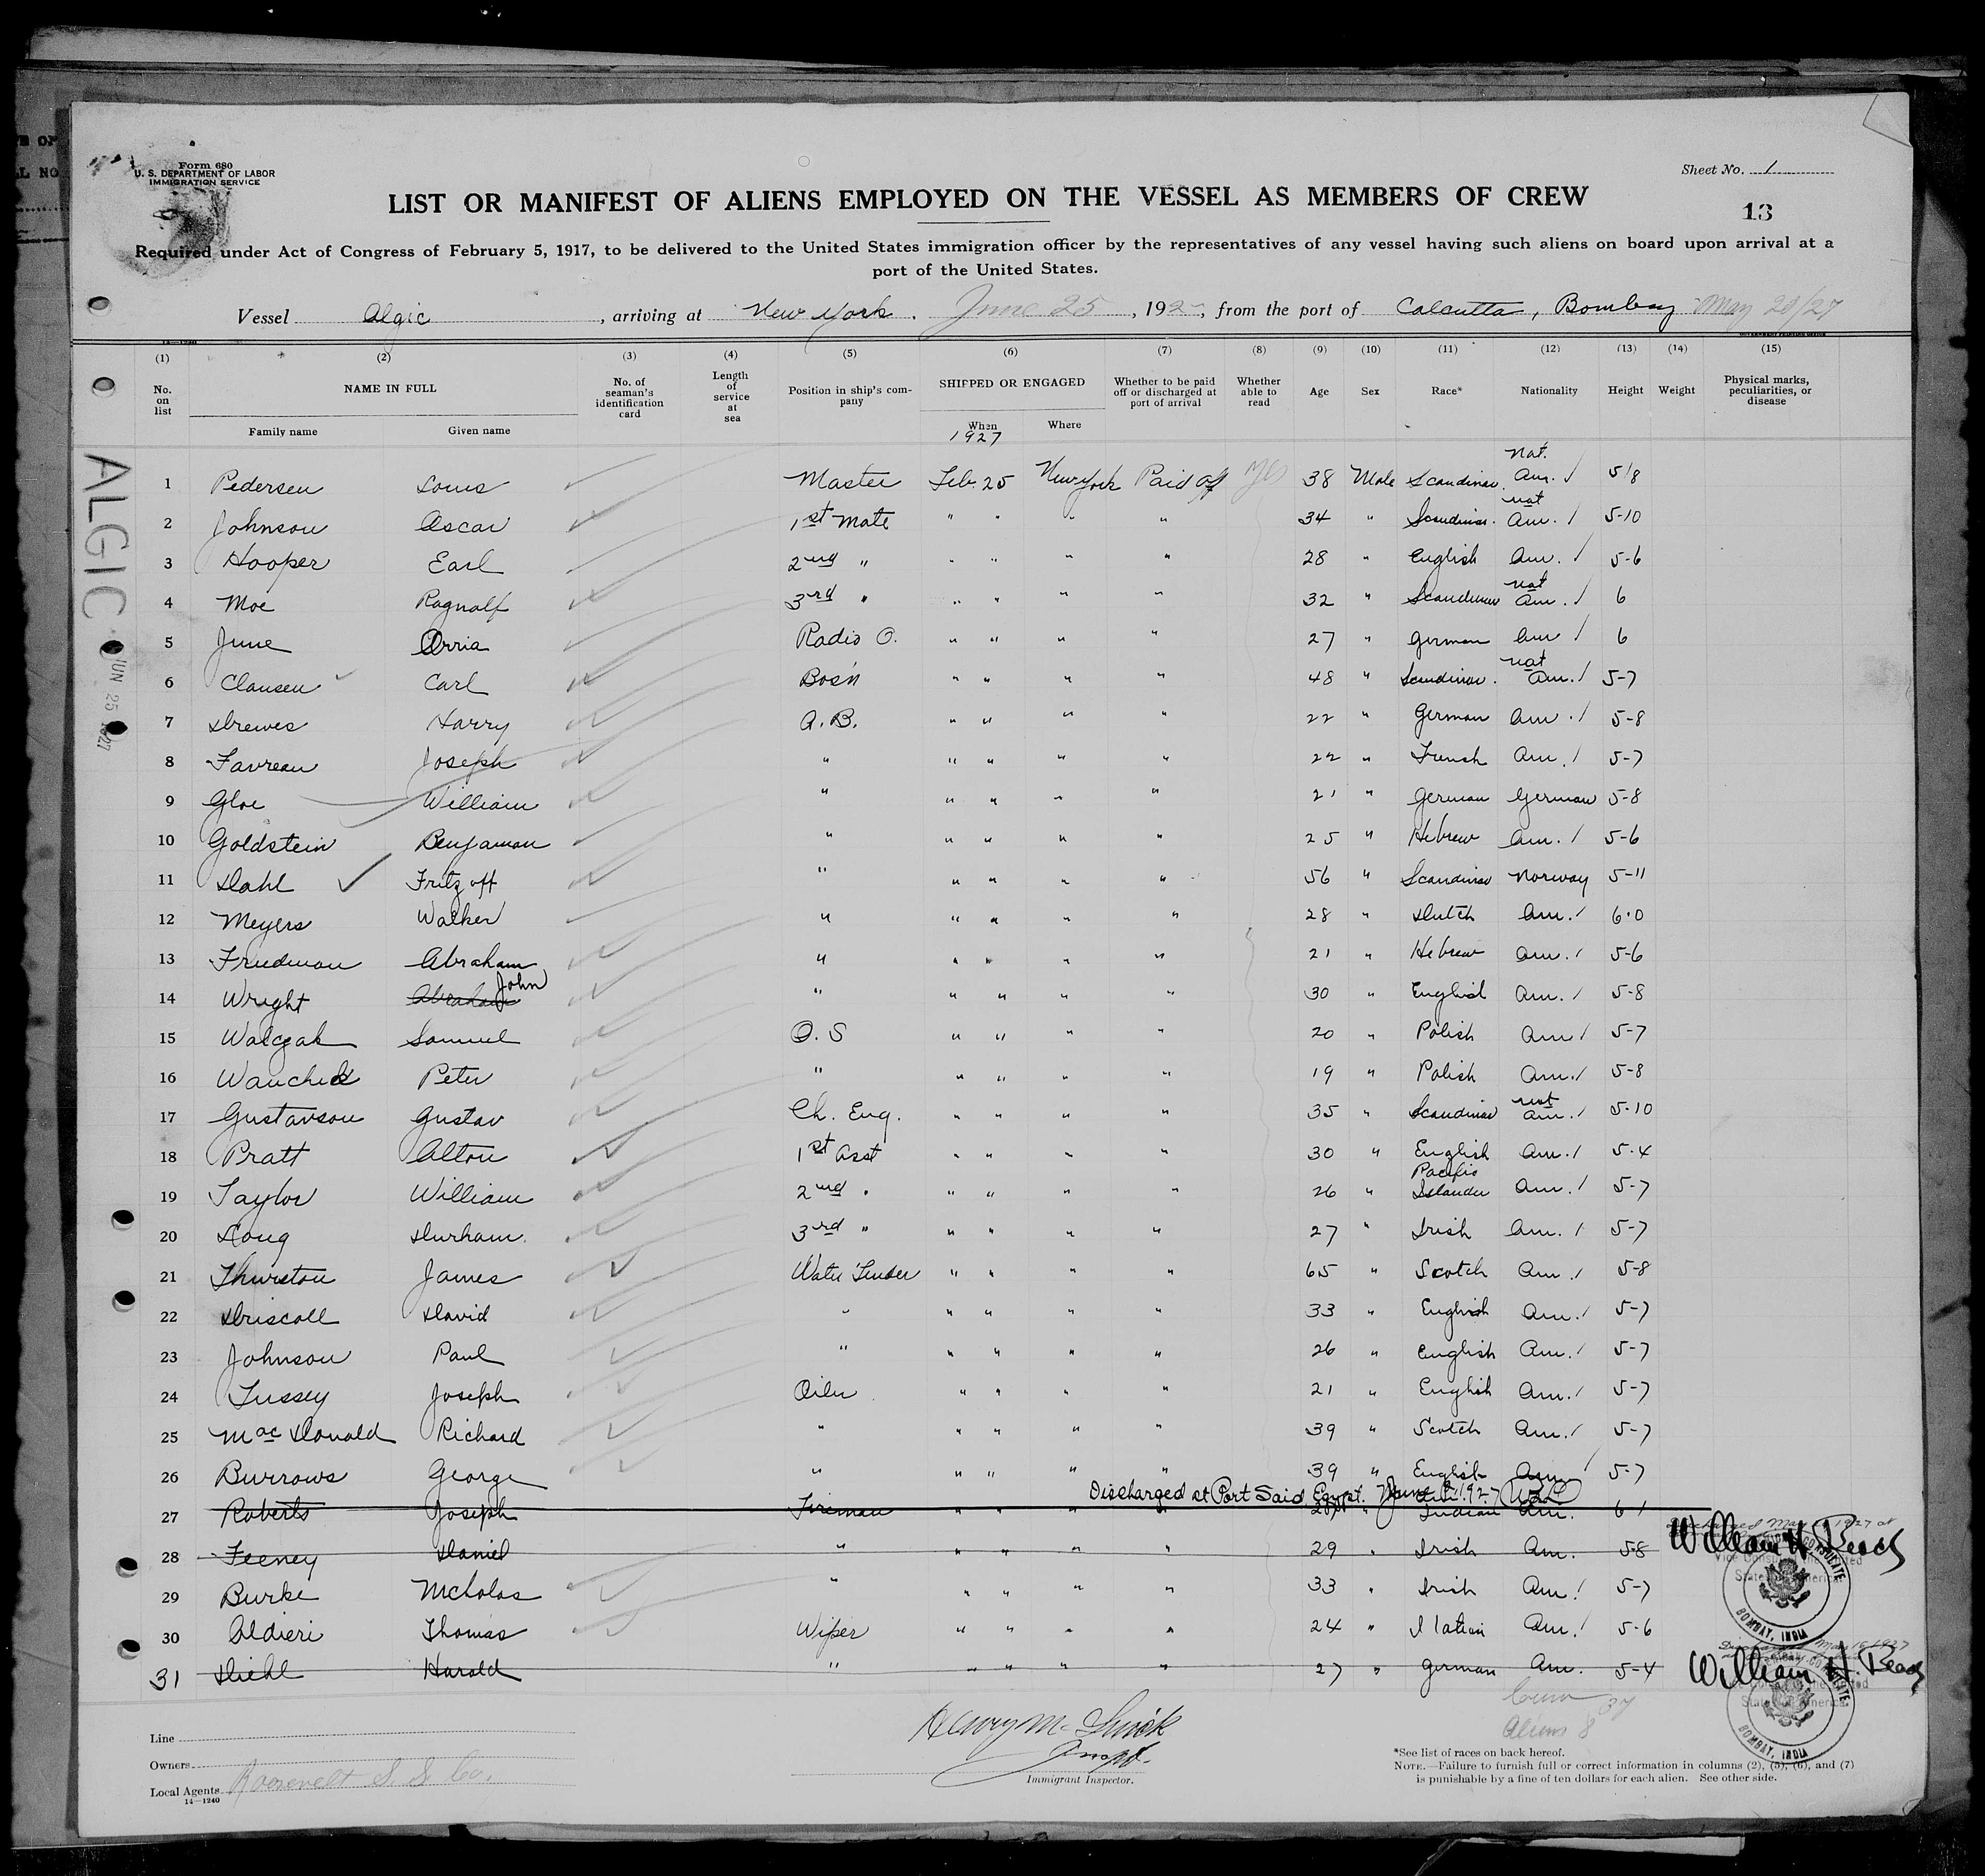 Form 680
U. S. DEPARTMENT OF LABOR
IMMIGRATION SERVICE
Sheet No. 1
LIST OR MANIFEST OF ALIENS EMPLOYED ON THE VESSEL AS MEMBERS OF CREW
13
Required under Act of Congress of February 5, 1917, to be delivered to the United States immigration officer by the representatives of any vessel having such aliens on board upon arrival at a
port of the United States.
Vessel Algic, arriving at New York. June 25, 192, from the port of Calcutta, Bombay May 20/27
14—1240
(1) (2) (3) (4) (5) (6) (7) (8) (9) (10) (11) (12) (13) (14) (15)
No. on list NAME IN FULL No. of seaman's identification card Length of service at sea Position in ship's company SHIPPED OR ENGAGED Whether to be paid off or discharged at port of arrival Whether able to read Age Sex Race* Nationality Height Weight Physical marks, peculiarities, or disease
Family name Given name When Where
1927
ALGIC
JUN 25 1927
1 Pedersen Louis Master Feb. 25 New York Paid off yes 38 Male Scandinav. Nat. Am. 5/8
2 Johnson Oscar 1st Mate " " " " 34 " Scandinav. nat Am. 5-10
3 Hooper Earl 2nd " " " " " 28 " English Am. 5-6
4 Moe Ragnalf 3rd " " " " " 32 " Scandinav nat Am. 6
5 June Orria Radio O. " " " " 27 " German Am 6
6 Clausen Carl Bos'n " " " " 48 " Scandinav. nat Am. 5-7
7 Drewes Harry A.B. " " " " 22 " German Am. 5-8
8 Favreau Joseph " " " " " 22 " French Am. 5-7
9 Gloe William " " " " " 21 " German German 5-8
10 Goldstein Benjaman " " " " " 25 " Hebrew Am. 5-6
11 Dahl Fritz off " " " " " 56 " Scandinav Norway 5-11
12 Meyers Walker " " " " " 28 " Dutch Am. 6-0
13 Friedman Abraham " " " " " 21 " Hebrew Am. 5-6
14 Wright Abraham John " " " " " 30 " English Am. 5-8
15 Walczak Samuel O.S " " " " 20 " Polish Am 5-7
16 Peter " " " " " 19 " Polish Am. 5-8
17 Gustavson Gustav Ch. Eng. " " " " 35 " Scandinav nat Am. 5-10
18 Pratt Alton 1st Asst " " " " 30 " English Am. 5-4
19 Taylor William 2nd " " " " " 26 " Pacific Islander Am. 5-7
20 Long Durham. 3rd " " " " " 27 " Irish Am. 5-7
21 Thurston James Water Tender " " " " 65 " Scotch Am. 5-8
22 Driscoll David " " " " " 33 " English Am. 5-7
23 Johnson Paul " " " " " 26 " English Am. 5-7
24 Tussey Joseph Oiler " " " " 21 " English Am. 5-7
25 MacDonald Richard " " " " " 39 " Scotch Am. 5-7
26 Burrows George " " " " " 39 " English Am 5-7
Discharged at Port Said Egypt. 1927
27 Roberts Joseph Fireman " " " " " Indian Am. 6-1
28 Feeney Daniel " " " " " 29 " Irish Am. 5-8
William H. Beach
29 Burke Nicholas " " " " " 33 " Irish Am. 5-7
30 Aldieri Thomas Wiper " " " " 24 " Italian Am. 5-6
BOMBAY, INDIA
31 Diehl Harold " " " " " 27 " German Am. 5-4
William H. Beach
Aliens 8
BOMBAY, INDIA
Line
Owners
Local Agents Roosevelt S. S. Co.
14—1240
Immigrant Inspector.
*See list of races on back hereof.
NOTE.—Failure to furnish full or correct information in columns (2), (5), (6), and (7)
is punishable by a fine of ten dollars for each alien. See other side.